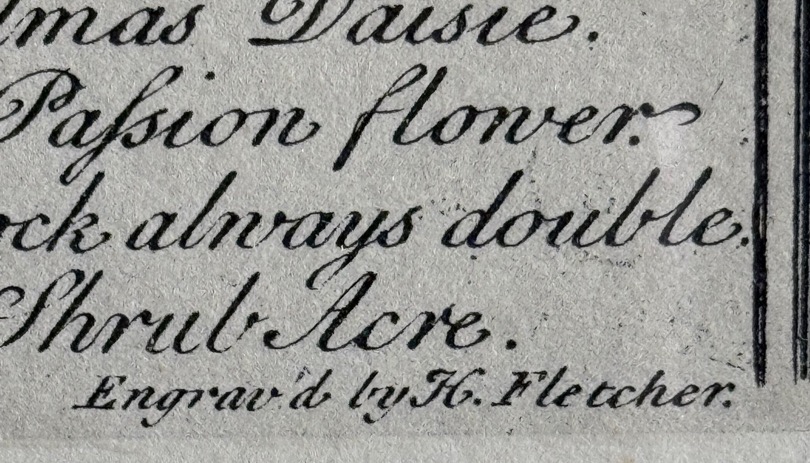 lmas Daisie.
Paſsion flower.
ock always double.
Shrub Acre.
Engrav'd by H. Fletcher.